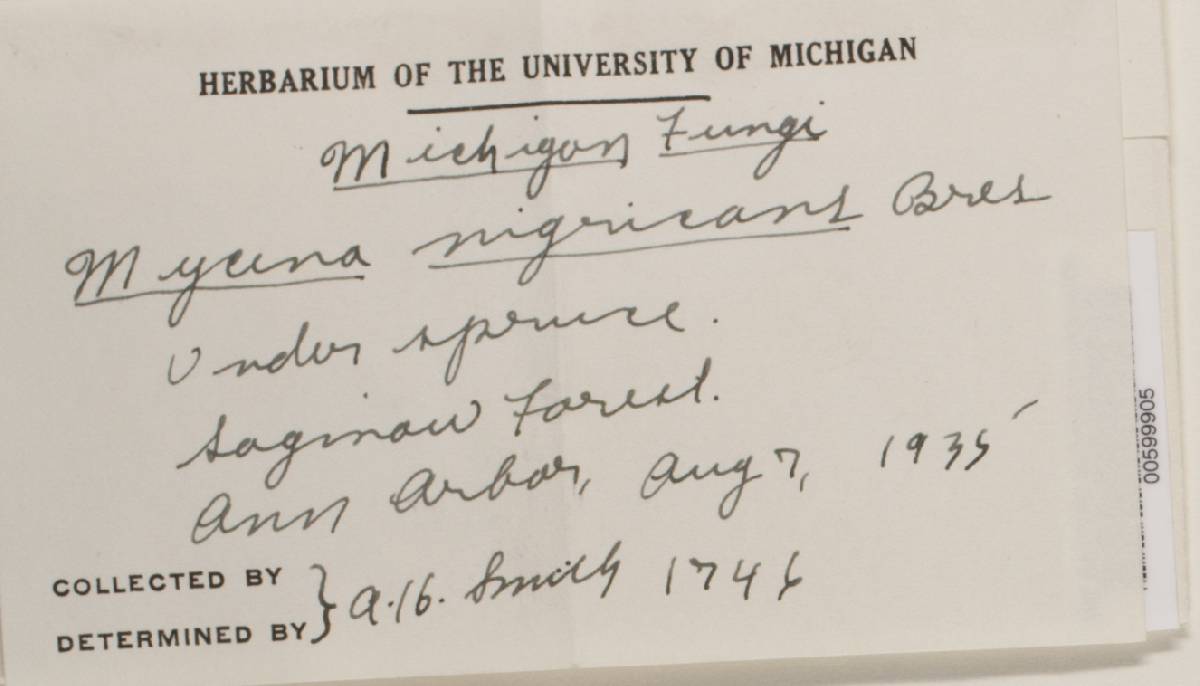 HERBARIUM OF THE UNIVERSITY OF MICHIGAN
Michigan Fungi
Mycena nigricans Bres
Under spruce.
Saginaw Forest.
Ann Arbor, Aug 7, 1935
COLLECTED BY
DETERMINED BY } A. H. Smith 1746
00599905